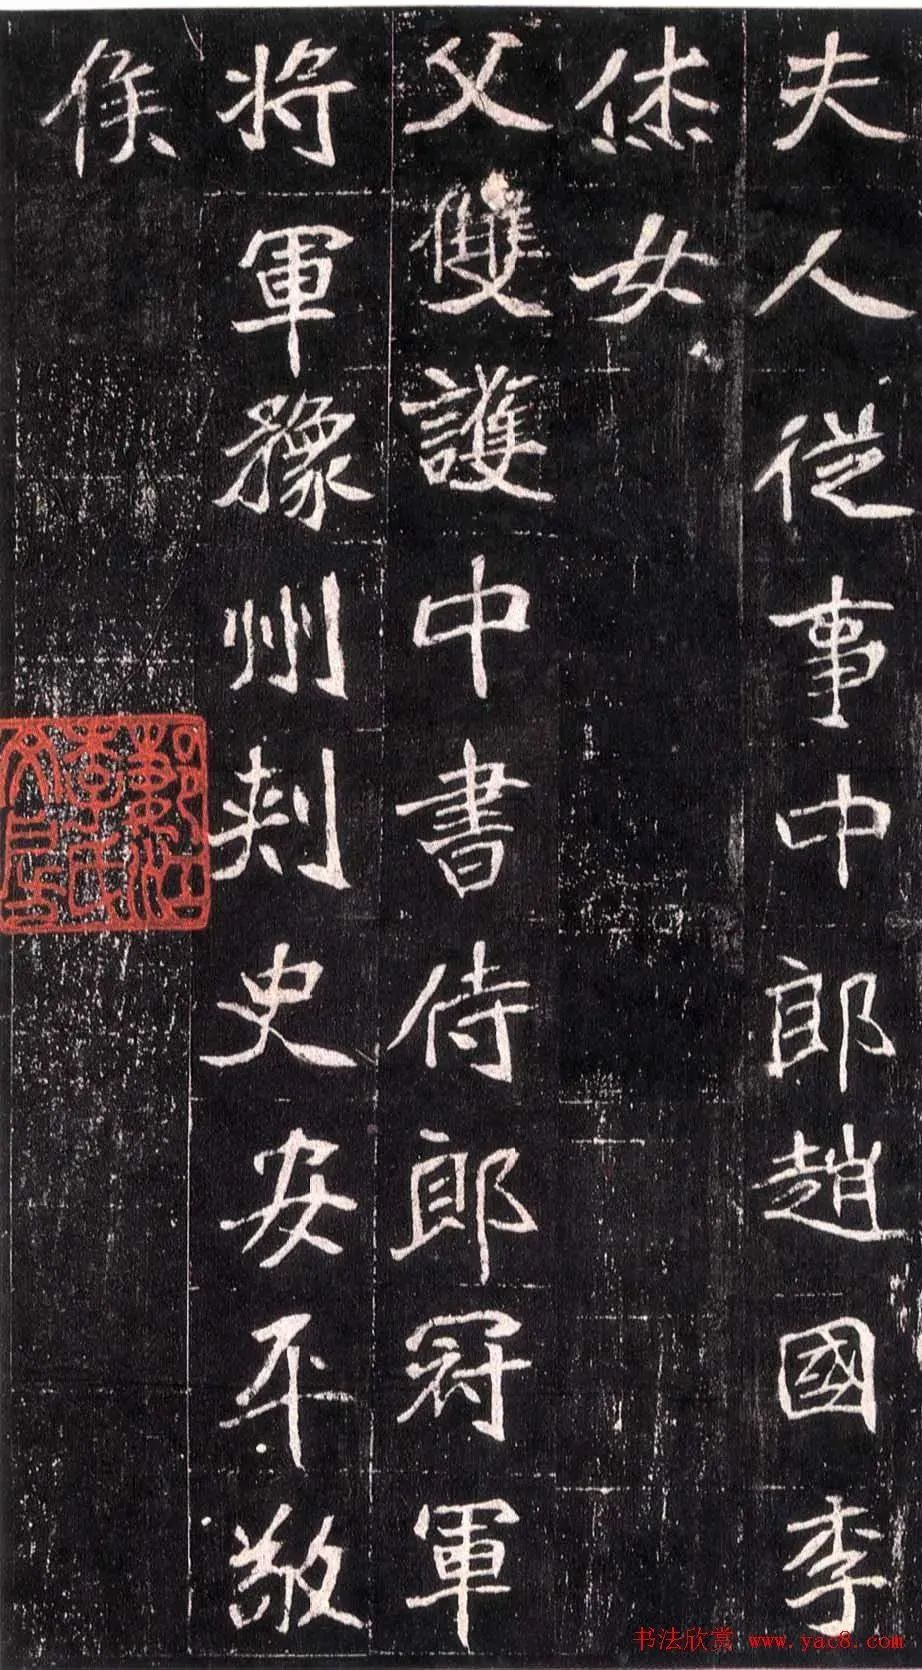 夫人從事中郎趙國李
烋女
父雙護中書侍郎冠軍
將軍豫州刾史安平敬
侯
书法欣赏 www.yac8.com